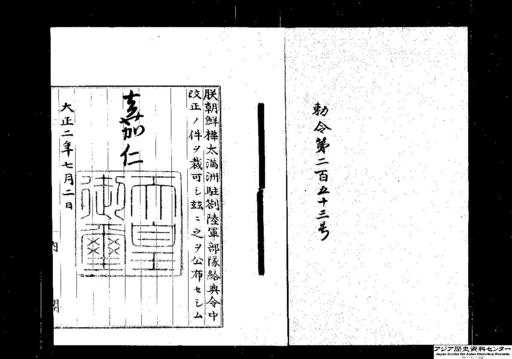 勅令第二百五十三号
朕朝鮮樺太満洲駐剳陸軍部隊給与令中
改正ノ件ヲ裁可シ茲ニ之ヲ公布セシム
嘉仁
天皇
御璽
大正二年七月二日
内閣
アジア歴史資料センター
Japan Center for Asian Historical Records